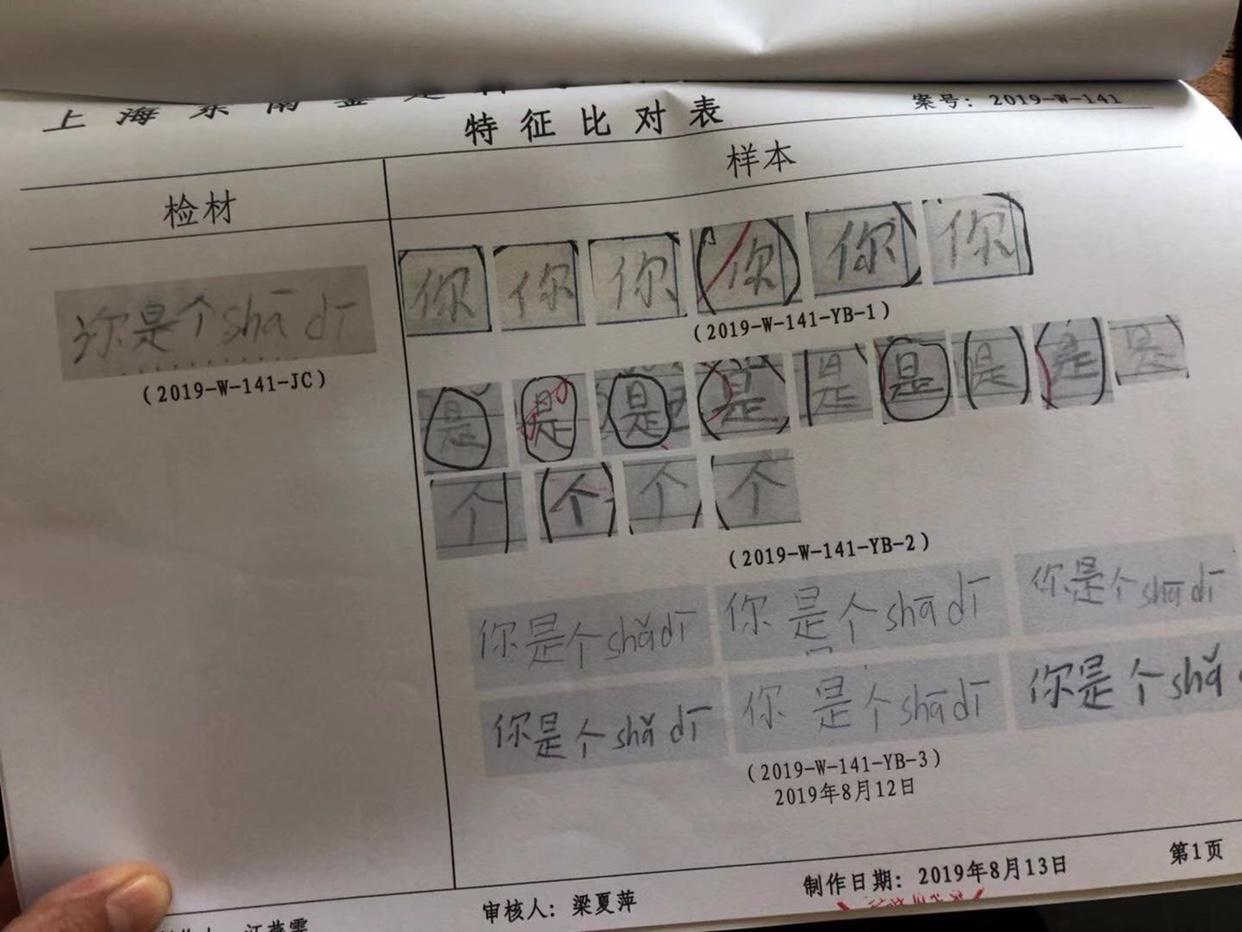 案号：2019-W-141
特征比对表
检材
样本
你是个shā dī
(2019-W-141-JC)
你 你 你 你 你 你
(2019-W-141-YB-1)
是 是 是 是 是 是 是 是 是
个 个 个 个
(2019-W-141-YB-2)
你是个shǎdī 你是个shādī 你是个shādī
你是个shǎdī 你是个shādī 你是个shǎ
(2019-W-141-YB-3)
2019年8月12日
审核人：梁夏萍
制作日期：2019年8月13日
第1页